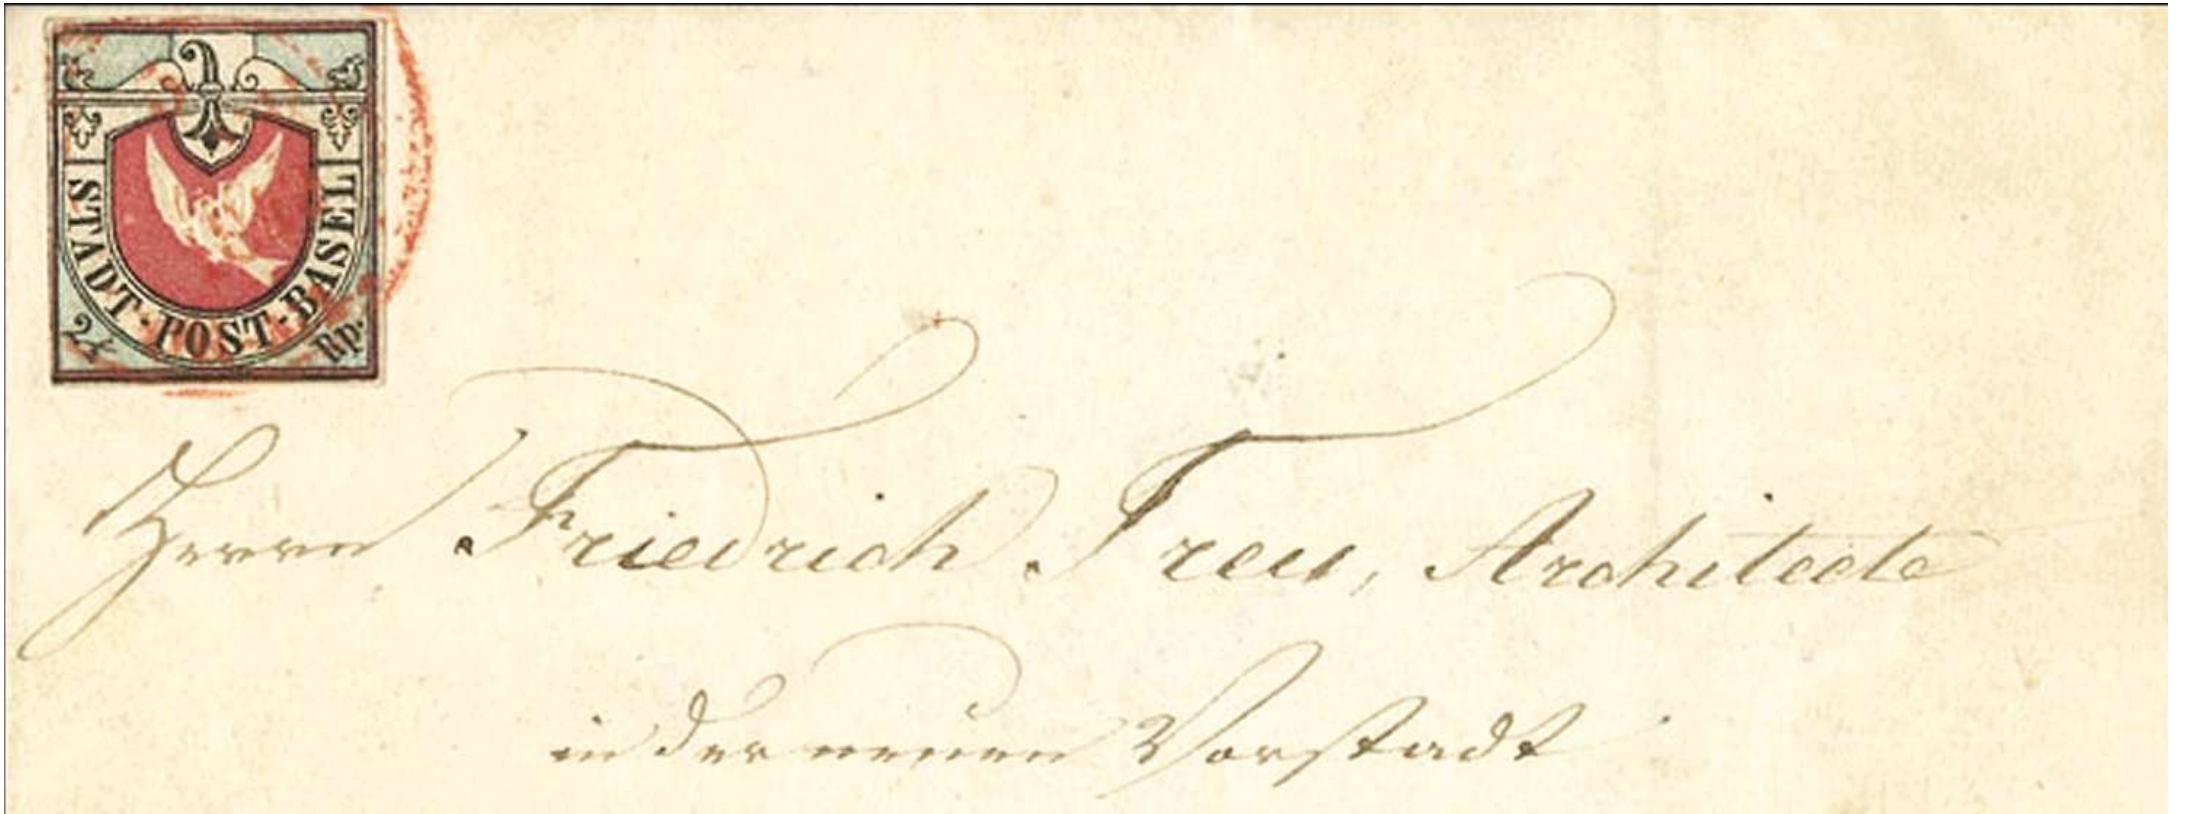 STADT-POST-BASEL
2½ Rp.
Herrn Friedrich Treu, Architecte
in der neuen Vorstadt